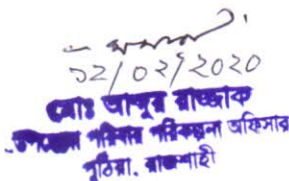 ১২/০২/২০২০
মোঃ আব্দুর রাজ্জাক
উপজেলা পরিবার পরিকল্পনা অফিসার
পুঠিয়া, রাজশাহী